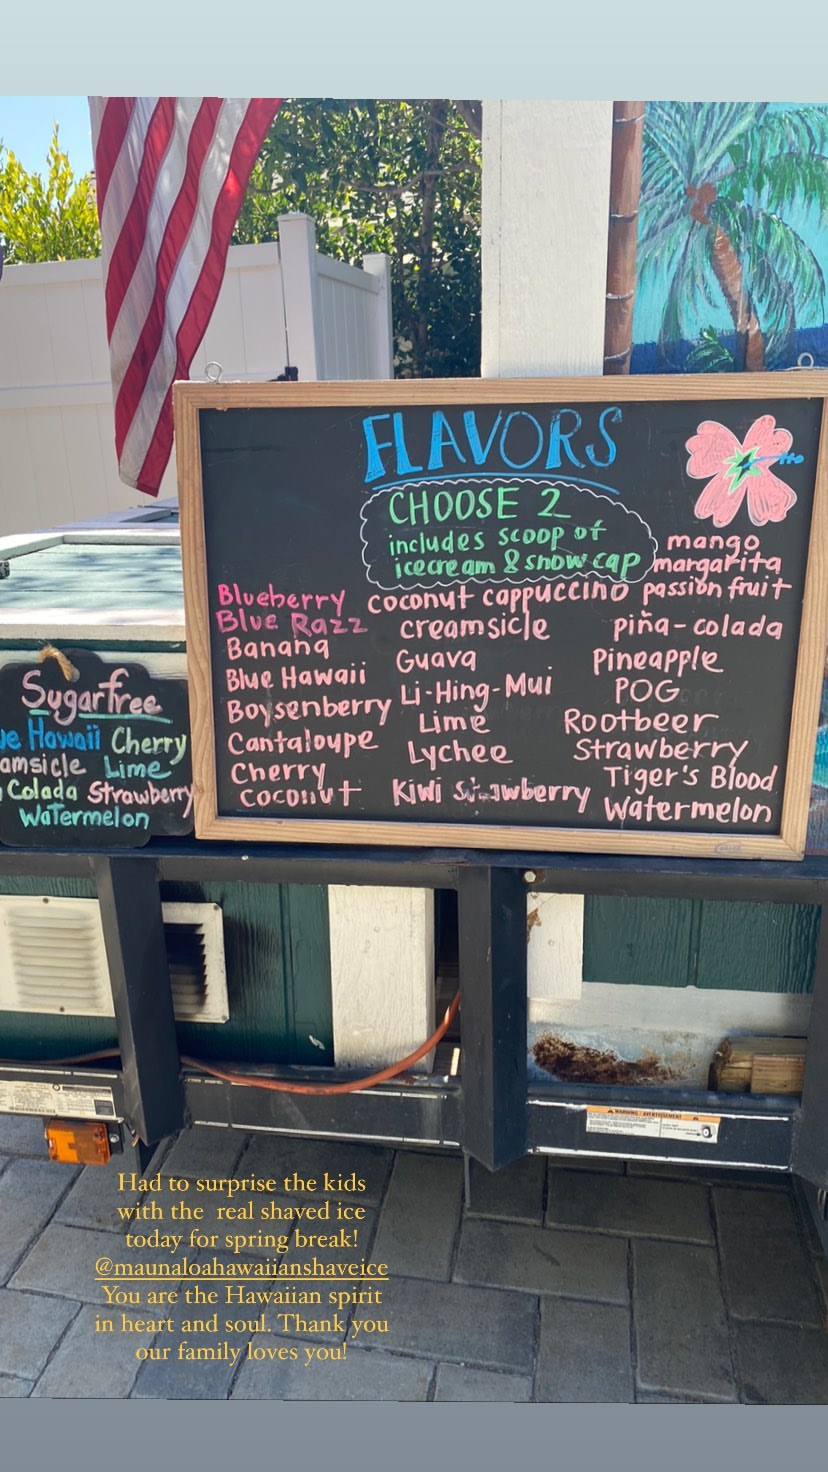 FLAVORS
CHOOSE 2
includes scoop of
icecream & snow cap
Blueberry
Blue Razz
Banana
Blue Hawaii
Boysenberry
Cantaloupe
Cherry
Coconut
coconut cappuccino
creamsicle
Guava
Li-Hing-Mui
Lime
Lychee
Kiwi strawberry
mango
margarita
passion fruit
piña-colada
Pineapple
POG
Rootbeer
Strawberry
Tiger's Blood
Watermelon
Sugarfree
Hawaii Cherry
Lime
Colada Strawberry
Watermelon
WARNING AVERTISSEMENT
Had to surprise the kids
with the real shaved ice
today for spring break!
@maunaloahawaiianshaveice
You are the Hawaiian spirit
in heart and soul. Thank you
our family loves you!